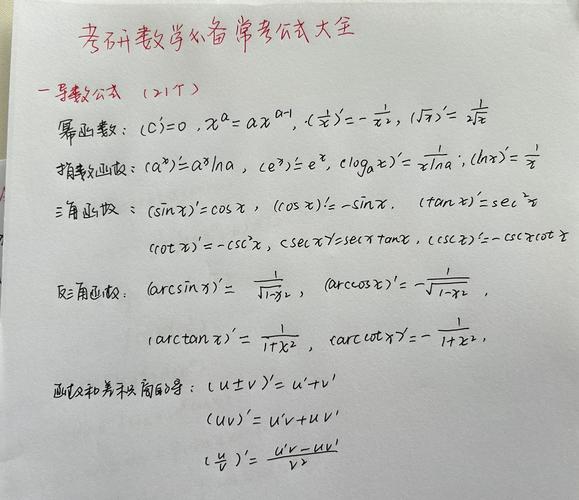 考研数学必备常考公式大全
一 导数公式 (21个)
幂函数: (C)'=0, x^a=ax^{a-1}, (1/x)'=-1/x², (√x)'=1/(2√x)
指数函数: (a^x)'=a^x lna, (e^x)'=e^x, (log_a x)'=1/(xlna); (lnx)'=1/x
三角函数: (sinx)'=cosx, (cosx)'=-sinx. (tanx)'=sec²x
(cotx)'=-csc²x, (secx)'=secxtanx, (cscx)'=-cscxcotx
反三角函数: (arcsinx)'=1/√(1-x²), (arccosx)'=-1/√(1-x²),
(arctanx)'=1/(1+x²), (arccotx)'=-1/(1+x²),
函数和差积商的导: (u±v)'=u'+v'
(uv)'=u'v+uv'
(u/v)'=(u'v-uv')/v²